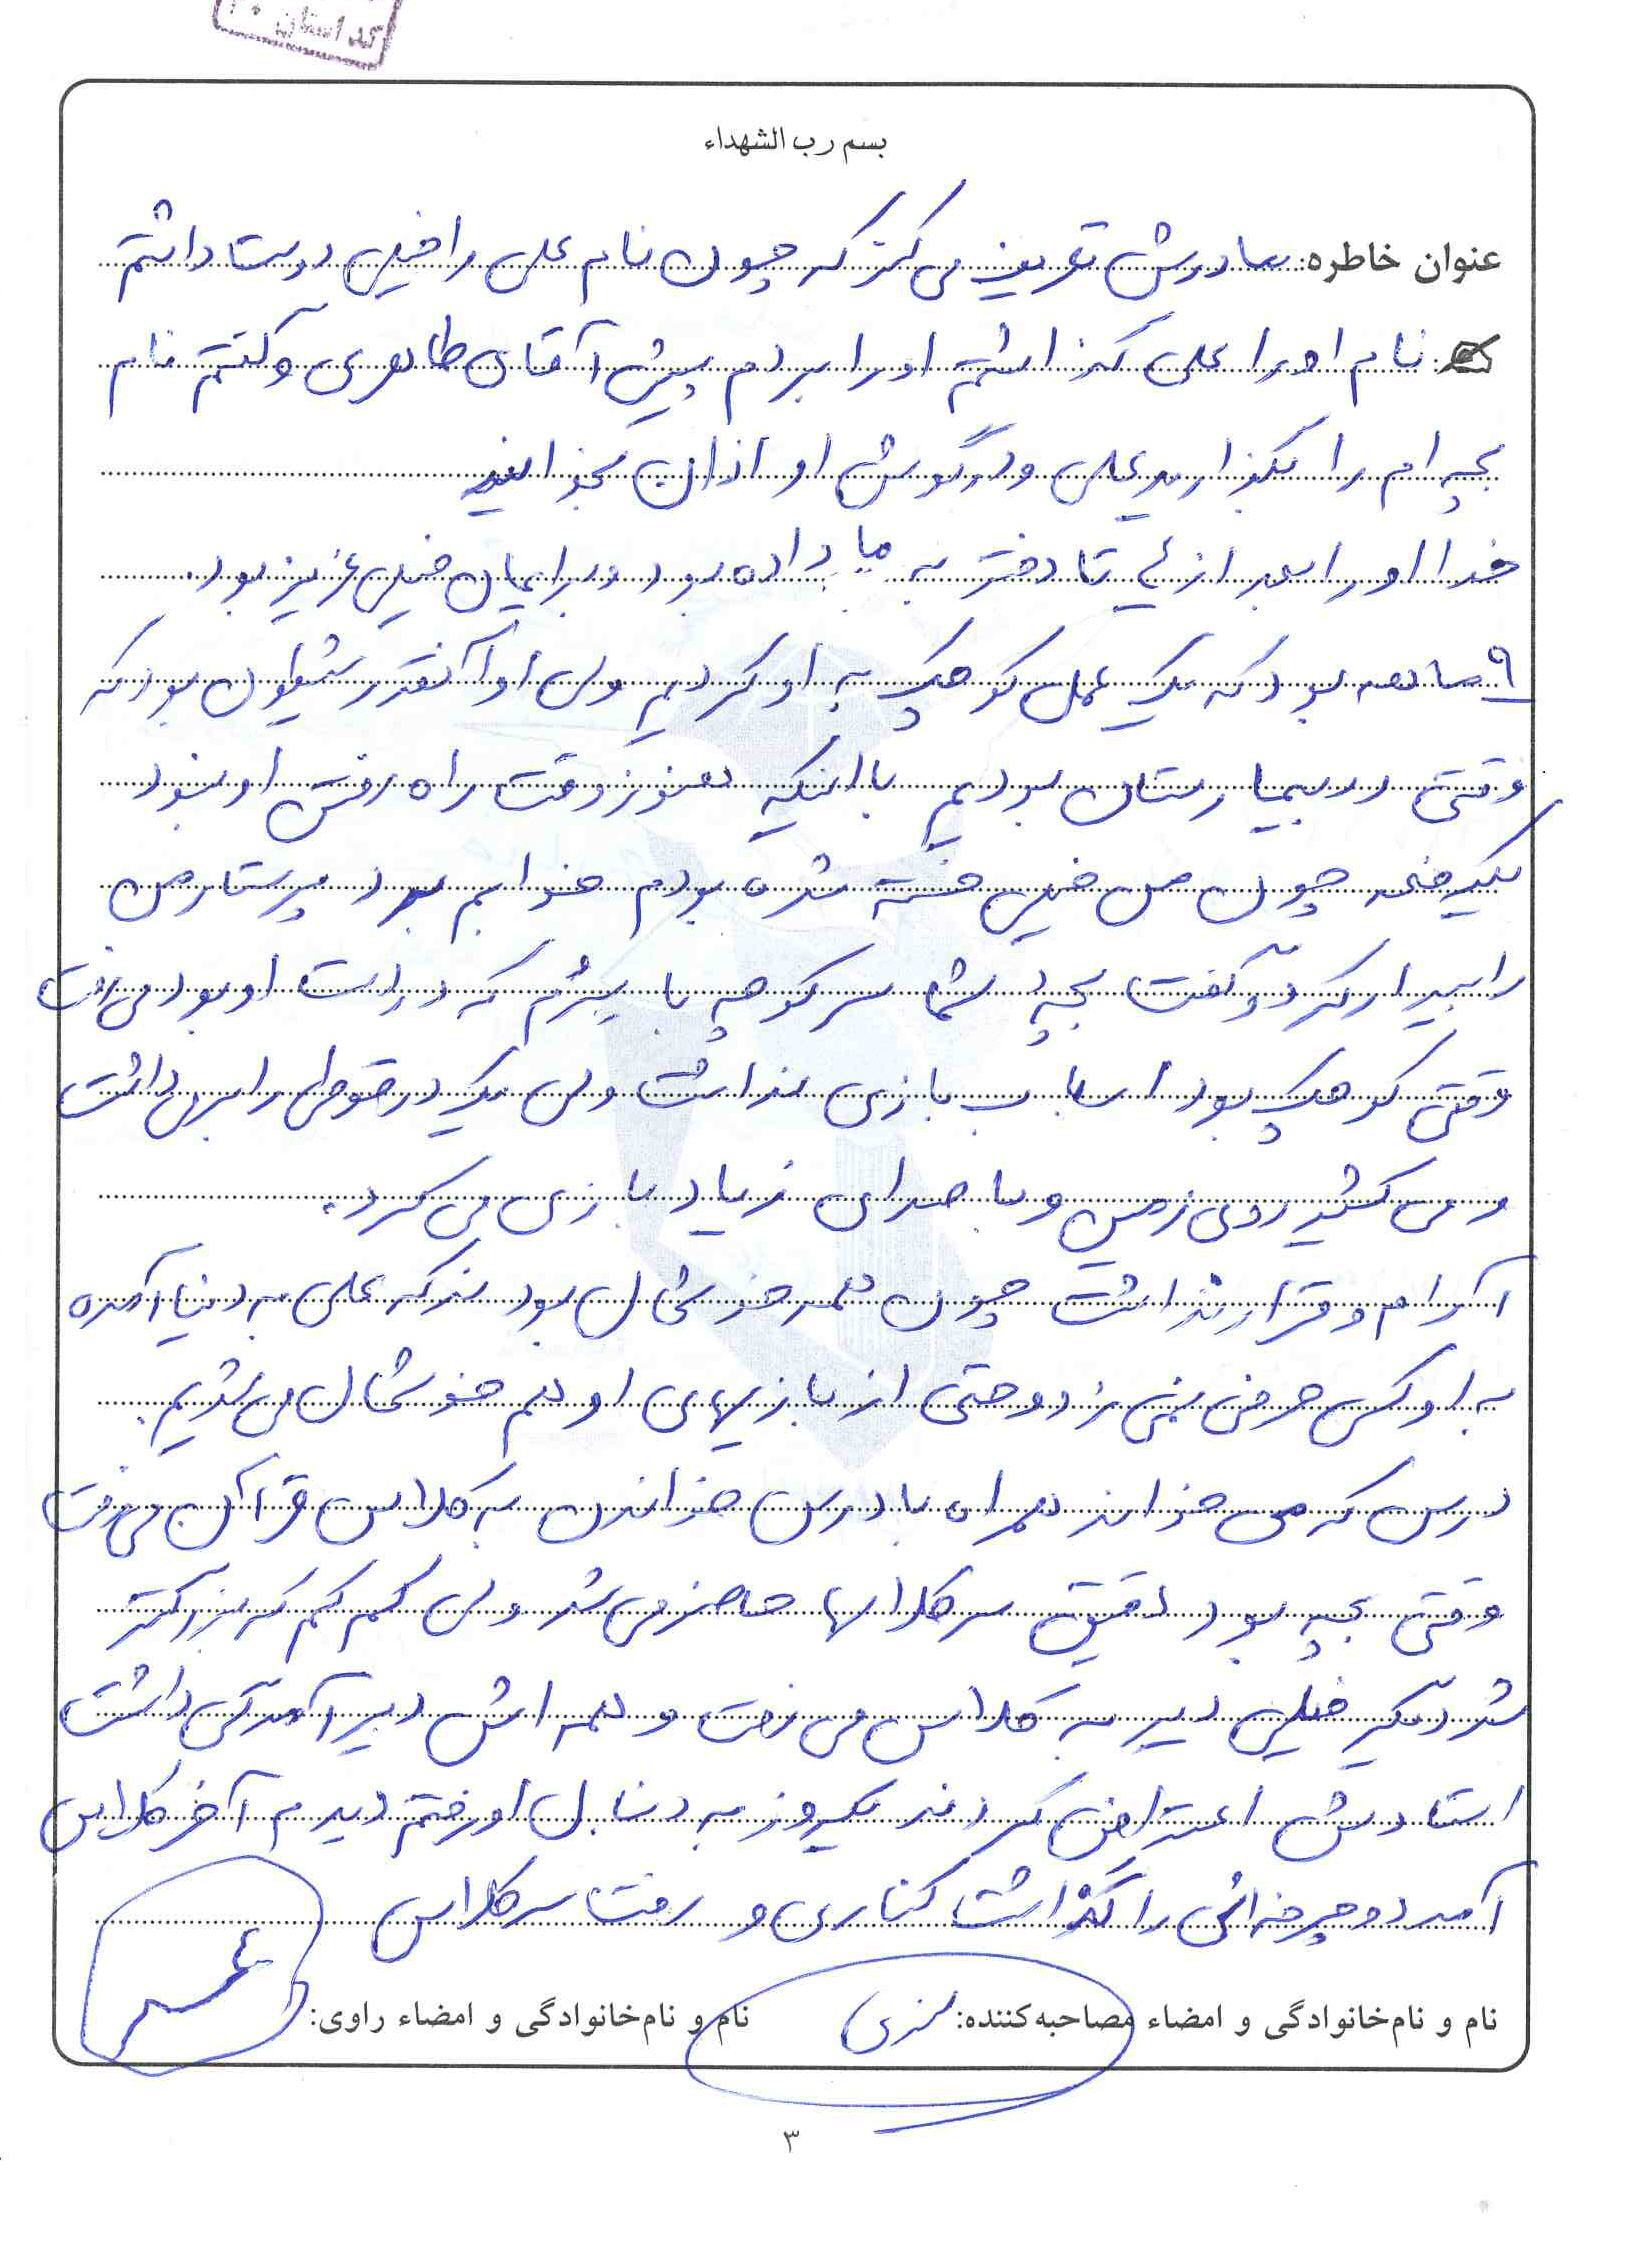 کد استان ۲۰
بسم رب الشهداء
عنوان خاطره: مادرش تعریف می کند که چون نام علی را خیلی دوست داشتم
نام او را علی گذاشتم او را بردم پیش آقای طاهری و گفتم نام
بچه ام را بگذارید علی و در گوش او اذان بخوانید
خدا او را بعد از ۴ تا دختر به ما داده بود و برایمان خیلی عزیز بود.
۹ ماهه بود که یک عمل کوچک به او کردیم ولی او آنقدر شیطون بود که
وقتی در بیمارستان بودیم با اینکه هنوز وقت راه رفتن او نبود
یکدفعه چون من خیلی خسته شده بودم خوابم برد پرستار من
را بیدار کرد و گفت بچه شما سر کوچه با سِرُم که در دست او بود می رفت
وقتی کوچک بود اسباب بازی نداشت ولی یک در قوطی را برمی داشت
و می کشید روی زمین و با صدای زیاد بازی می کرد.
آرام و قرار نداشت چون همه خوشحال بودند که علی به دنیا آمده
به او کسی حرفی نمی زد و حتی از بازیهای او هم خوشحال می شدیم.
درس که می خواند همراه با درس خواندن به کلاس قرآن می رفت
وقتی بچه بود دقیق سر کلاسها حاضر می شد ولی کم کم که بزرگتر
شد دیگر خیلی دیر به کلاس می رفت و همه اش دیر آمدگی داشت
استادش اعتراض کردند یکروز به دنبال او رفتم دیدم آخر کلاس
آمد دوچرخه اش را گذاشت کناری و رفت سر کلاس
نام و نام‌خانوادگی و امضاء مصاحبه‌کننده: نام و نام‌خانوادگی و امضاء راوی:
۳